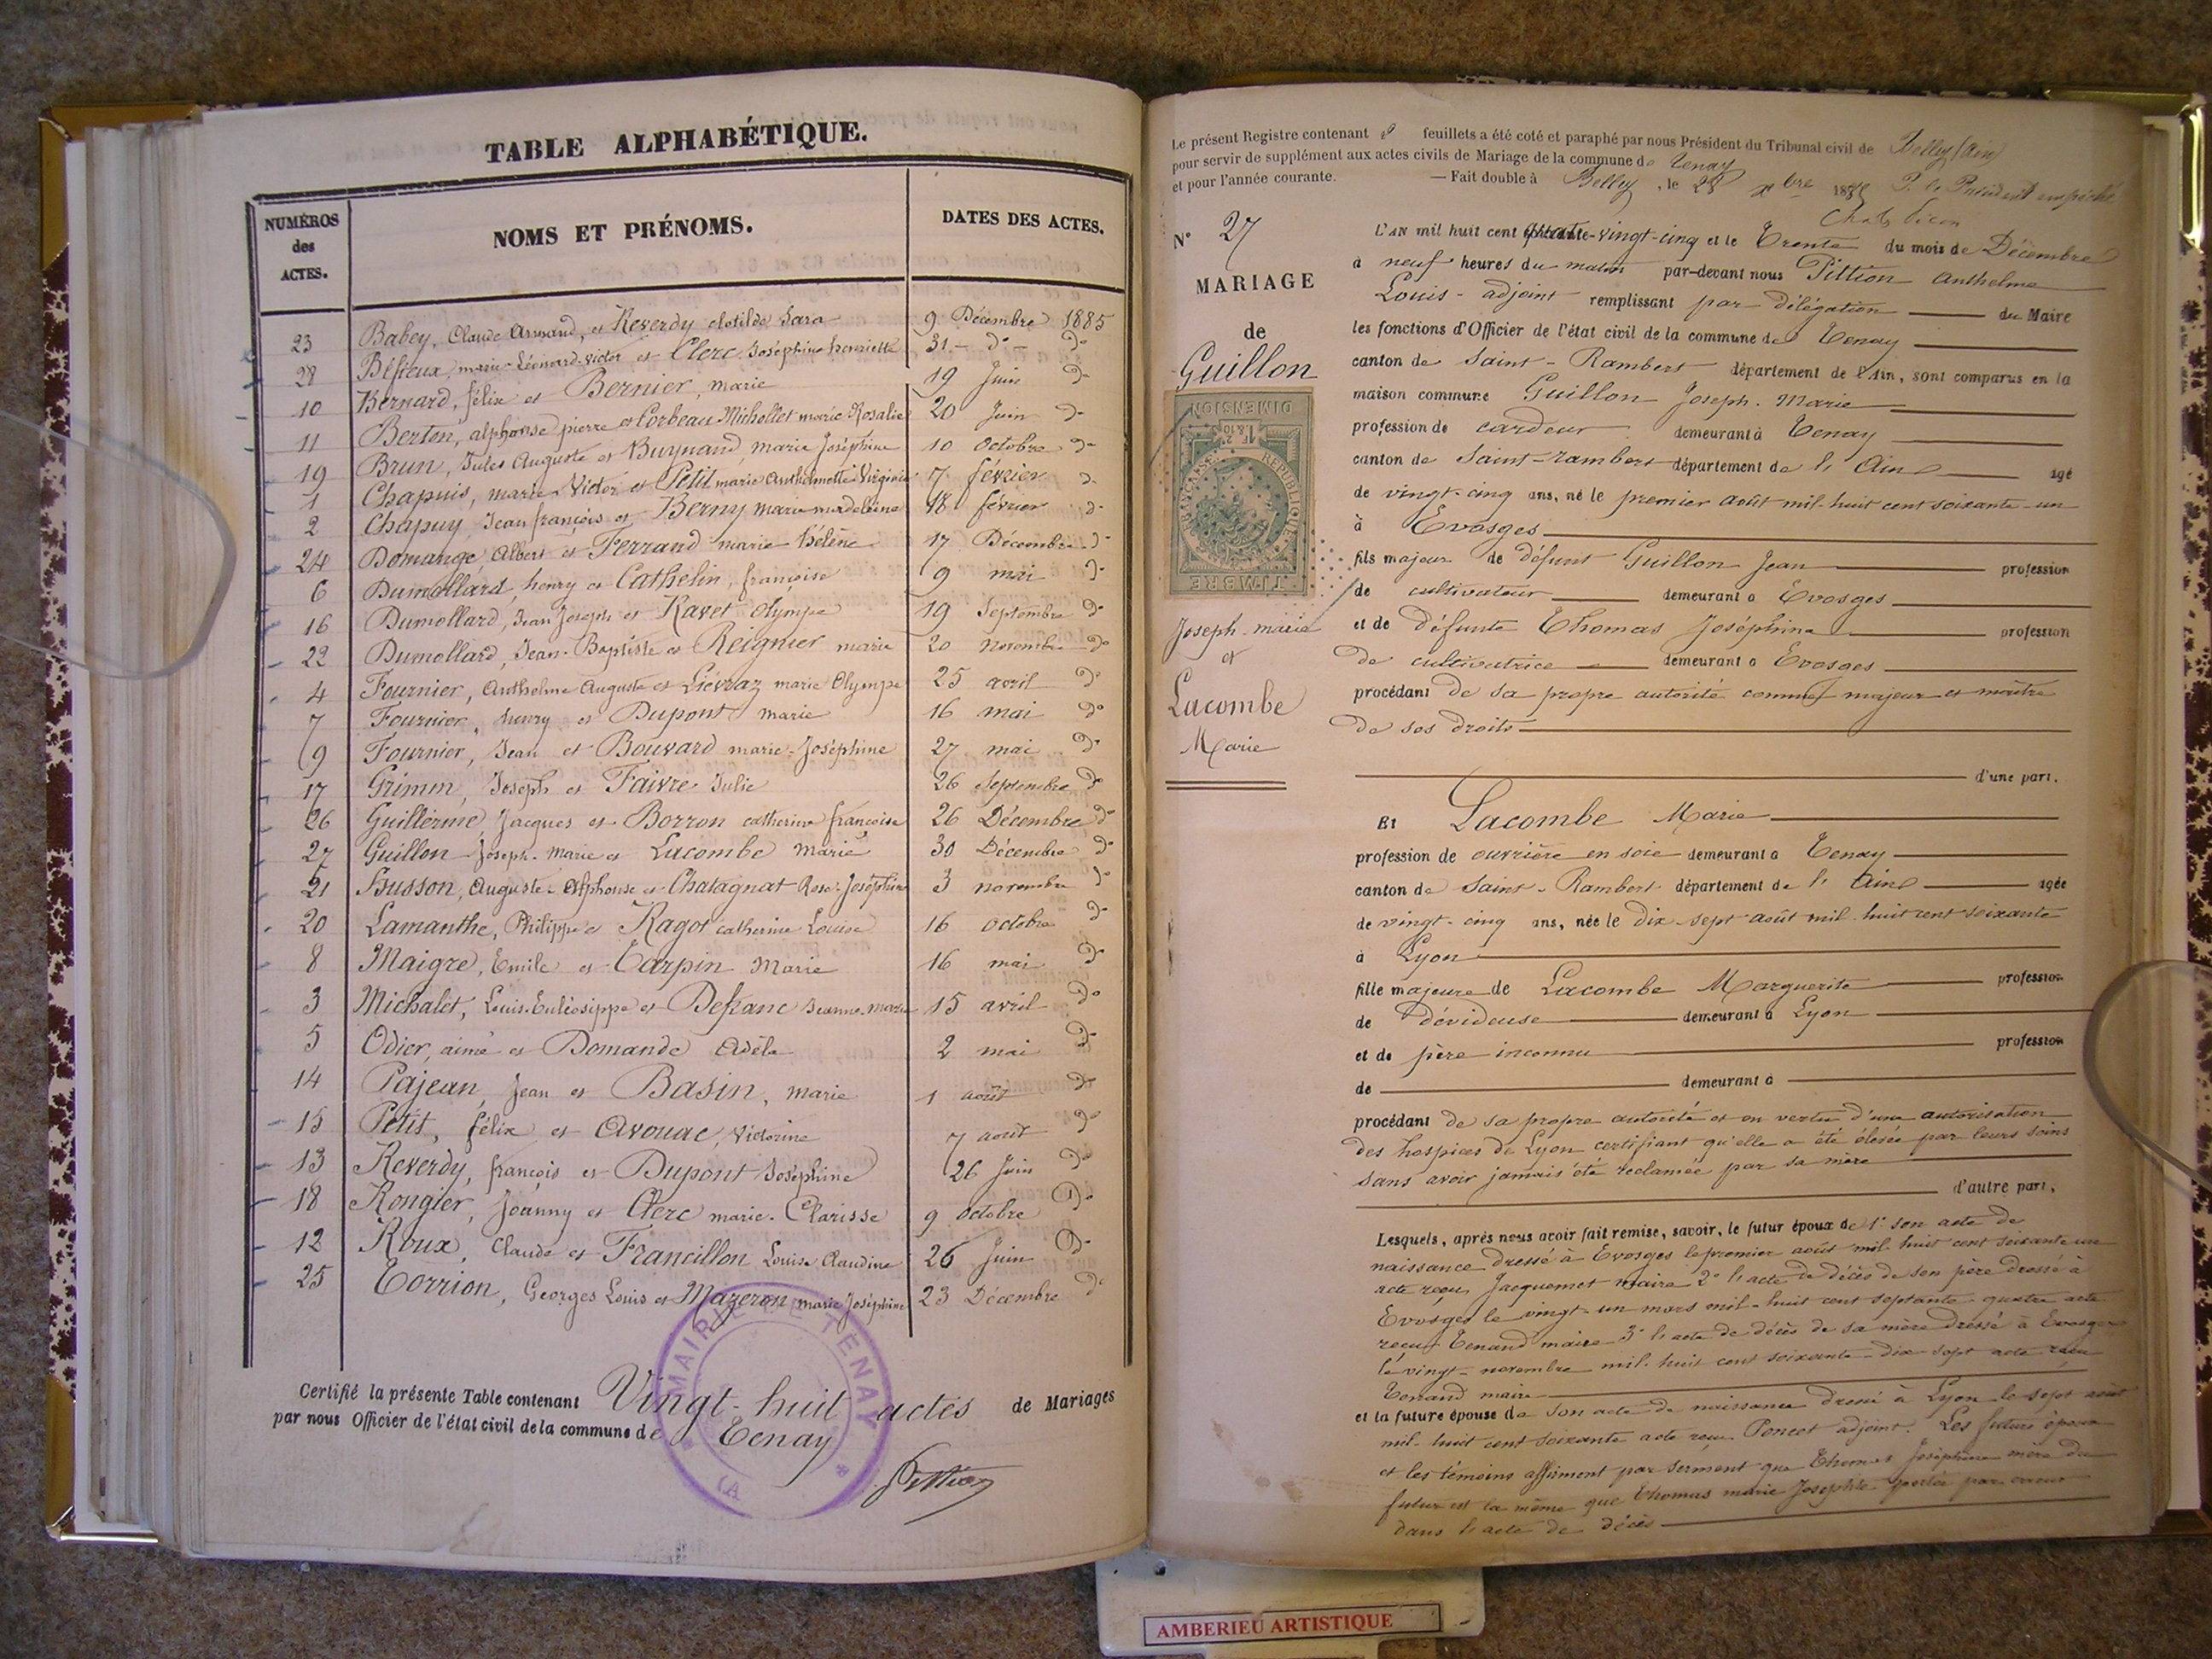 TABLE ALPHABÉTIQUE.
NUMÉROS des ACTES.
NOMS ET PRÉNOMS.
DATES DES ACTES.
23 Babey, Claude Armand, et Reverdy Clotilde Sara 9 Décembre 1885
28 marie Léonard Victor et Clerc Joséphine henriette 31 - do - do
10 Bernard, félix et Bernier, marie 19 Juin do
11 Berton, alphonse pierre et Corbeau Michollet marie Rosalie 20 Juin do
19 Brun, Jules Auguste et Buynand, marie Joséphine 10 Octobre do
1 Chapuis, marie Victor et Petit marie Anthelmette Virginie 7 février do
2 Chapuy, Jean françois et Berny marie madeleine 18 février do
24 Domange, Albert et Ferrand marie hélène 17 Décembre do
6 Dumollard, henry et Cathelin, françoise 9 mai do
16 Dumollard, Jean Joseph et Ravet Olympe 19 Septembre do
22 Dumollard, Jean-Baptiste et Reignier marie 20 novembre do
4 Fournier, Anthelme Auguste et Liévraz marie Olympe 25 avril do
7 Fournier, henry et Dupont marie 16 mai do
9 Fournier, Jean et Bouvard marie-Joséphine 27 mai do
17 Grimm, Joseph et Faivre Julie 26 Septembre do
26 Guillerme, Jacques et Borron catherine françoise 26 Décembre do
27 Guillon Joseph-Marie et Lacombe Marie 30 Décembre do
21 Husson, Auguste-Alphonse et Chatagnat Rose-Joséphine 3 novembre do
20 Lamanthe, Philippe et Ragot catherine Louise 16 octobre do
8 Maigre, Emile et Carpin Marie 16 mai do
3 Michalet, Louis et Defranc Jeanne-marie 15 avril do
5 Odier, aimé et Domande Adèle 2 mai do
14 Pajean, Jean et Basin, marie 1 août do
15 Petit, félix et Avouac, Victorine 7 août do
13 Reverdy, françois et Dupont Joséphine 26 Juin do
18 Rongier, Joanny et Clerc marie-Clarisse 9 octobre do
12 Roux, Claude et Francillon Louise Claudine 26 Juin do
25 Torrion, Georges Louis et Mazeron marie Joséphine 23 Décembre do
Certifié la présente Table contenant Vingt-huit actes de Mariages
par nous Officier de l'état civil de la commune de Tenay
MAIRIE DE TENAY
Pittion
Le présent Registre contenant feuillets a été coté et paraphé par nous Président du Tribunal civil de Belley (Ain)
pour servir de supplément aux actes civils de Mariage de la commune de Tenay
et pour l'année courante. — Fait double à Belley, le 28 Xbre 1885 P. le Président empêché
N° 27
MARIAGE
de
Guillon
DIMENSION
REPUBLIQUE FRANÇAISE
TIMBRE
Joseph-marie
et
Lacombe
Marie
L'AN mil huit cent quatre-vingt-cinq et le Trente du mois de Décembre
à neuf heures du matin par-devant nous Pittion Anthelme
Louis - adjoint remplissant par délégation du Maire
les fonctions d'Officier de l'état civil de la commune de Tenay
canton de Saint-Rambert département de l'Ain, sont comparus en la
maison commune Guillon Joseph-Marie
profession de cardeur demeurant à Tenay
canton de Saint-rambert département de l'Ain âgé
de vingt-cinq ans, né le premier août mil-huit cent soixante-un
à Evosges
fils majeur de défunt Guillon Jean profession
de cultivateur demeurant à Evosges
et de défunte Thomas Joséphine profession
de cultivatrice demeurant à Evosges
procédant de sa propre autorité comme majeur et maître
de ses droits
d'une part.
Et Lacombe Marie
profession de ouvrière en soie demeurant à Tenay
canton de Saint-Rambert département de l'Ain âgée
de vingt-cinq ans, née le dix-sept août mil-huit cent soixante
à Lyon
fille majeure de Lacombe Marguerite profession
de dévideuse demeurant à Lyon
et de père inconnu profession
de demeurant à
procédant de sa propre autorité et en vertu d'une autorisation
des hospices de Lyon certifiant qu'elle a été élevée par leurs soins
sans avoir jamais été réclamée par sa mère
d'autre part.
Lesquels, après nous avoir fait remise, savoir, le futur époux de 1° son acte de
naissance dressé à Evosges le premier août mil-huit cent soixante un
acte reçu Jacquemet maire 2° l'acte de décès de son père dressé à
Evosges le vingt-un mars mil-huit cent septante-quatre acte
reçu Tenand maire 3° l'acte de décès de sa mère dressé à Evosges
le vingt-novembre mil-huit cent soixante-dix-sept acte reçu
Tenand maire
et la future épouse de son acte de naissance dressé à Lyon le sept août
mil-huit cent soixante acte reçu Poncet adjoint. Les futurs époux
et les témoins affirment par serment que Thomas Joséphine mère du
futur est la même que Thomas marie Josephte portée par erreur
dans l'acte de décès
AMBERIEU ARTISTIQUE